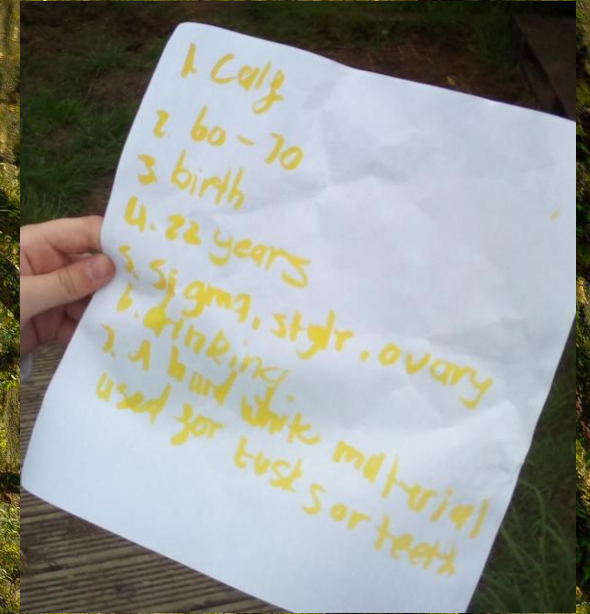 1. Calf
2. 60-70
3. birth
4. 22 years
5. sigma, style, ovary
6. drinking.
7. A hard white material
used for tusks or teeth